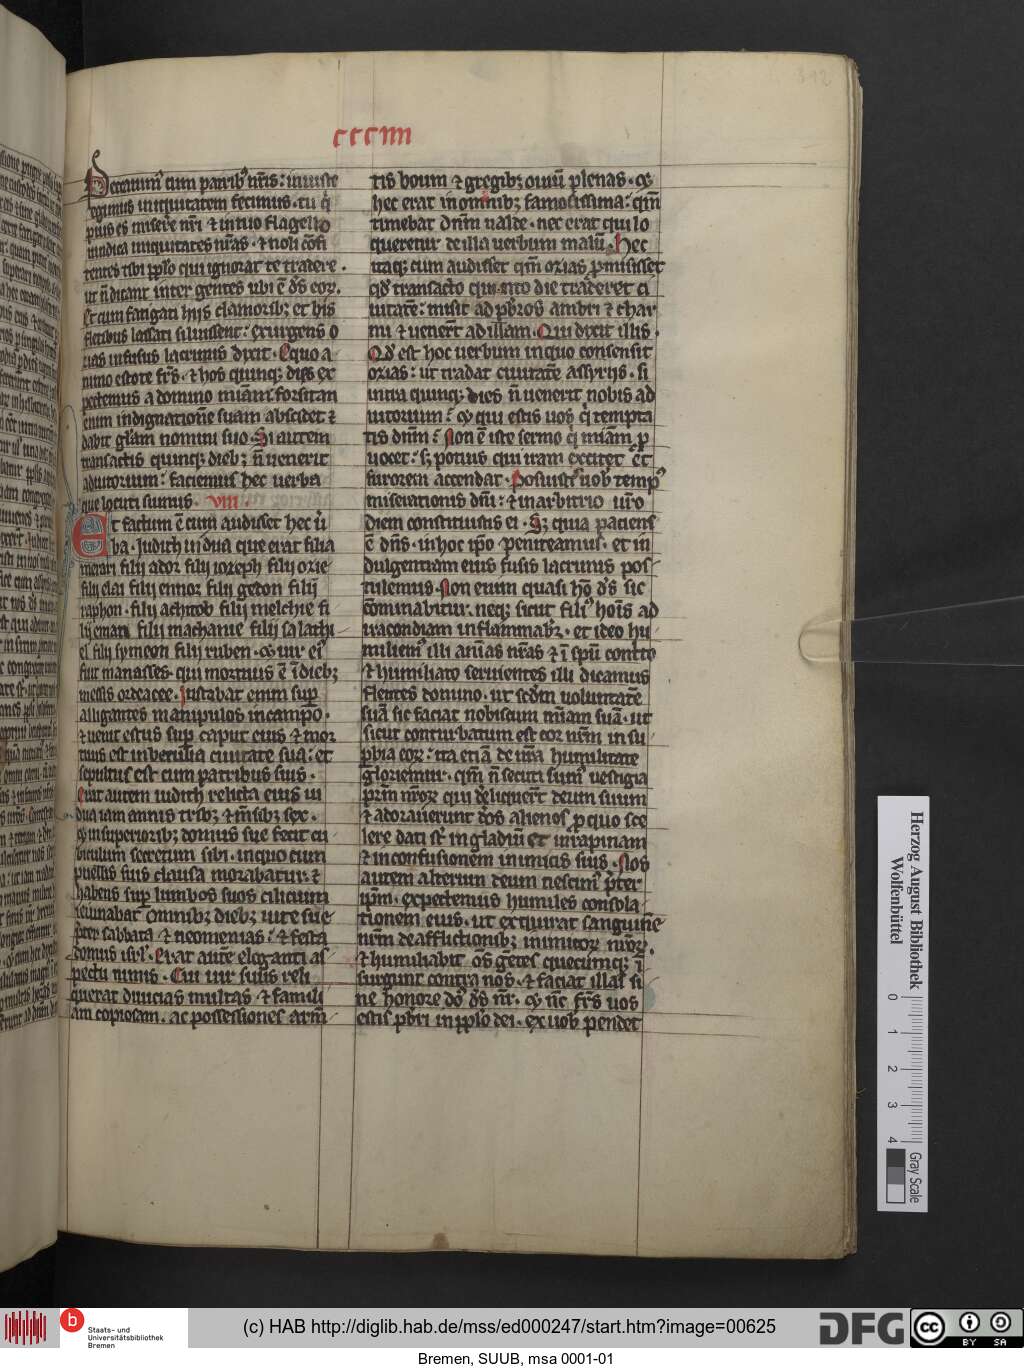 ccciiii
Peccauimus cum patribꝰ nr̄is: iniuste
egimus iniquitatem fecimus. tu qͥ
pius es misere nr̄i ⁊ in tuo flagello
uindica iniquitates nr̄as. ⁊ noli cōfi
tentes tibi pplo qui ignorat te tradere.
ut n̄ dicant inter gentes ubi ē ds̄ eoꝝ.
Et cum fatigati hijs clamoribꝫ et his
fletibus lassati siluissent: exurgens o
zias infusus lacrimis dixit. Equo a
nimo estote fr̄s. ⁊ hos quinqꝫ dies ex
pectemus a domino mīam forsitan
enim indignationē suam abscidet ⁊
dabit glam nomini suo. Si autem
transactis quinqꝫ diebꝫ n̄ uenerit
adiutorium: faciemus hec uerba
que locuti sumus. viii.
Et factum ē cum audisset hec ūͥ
ba. Judith uidua que erat filia
merari filij ydor filij ioseph filij ozie
filij elai filij ennor filij gedon filij
raphon. filij achitob filij melchie fi
lij enan filij machanie filij salathi
el filij symeon filij ruben. ⁊ uir eiꝰ
fuit manasses. qui mortuus ē ī diebꝫ
messis ordeacee. Instabat enim sup̄
alligantes manipulos in campo.
⁊ uenit estus sup̄ caput eius ⁊ mor
tuus est in betulia ciuitate sua: et
sepultus est cum patribus suis.
Erat autem iudith relicta eius ui
dua iam annis tribꝫ ⁊ mēsibꝫ sex.
⁊ in superioribꝫ domus sue fecit cu
biculum secretum sibi. in quo cum
puellis suis clausa morabatur. ⁊
habens sup̄ lumbos suos cilicium
ieiunabat omnibꝫ diebꝫ uite sue
p̄ter sabbata ⁊ neomenias: ⁊ festa
domus isrl̄. Erat autē eleganti as
pectu nimis. Cui uir suus reli
querat diuicias multas ⁊ famili
am copiosam. ac possessiones arm̄
tis boum ⁊ gregibꝫ ouiū plenas. ⁊
hec erat in omnibꝫ famosissima: qm̄
timebat dnm̄ ualde. nec erat qui lo
queretur de illa uerbum malū. Hec
itaqꝫ cum audisset qm̄ ozias pͥmisisset
qd̄ transacto quinto die traderet ci
uitatē: misit ad p̄bros ambri ⁊ char
mi ⁊ uenert̄ ad illam. Qui dixit illis.
Qd̄ est hoc uerbum in quo consensit
ozias: ut tradat ciuitatē assyrijs. si
intra quinqꝫ dies n̄ uenerit nobis ad
iutorium: ⁊ qui estis uos qͥ tempta
tis dnm̄: Non ē iste sermo qͥ mīam p
uocet: sꝫ potius qui iram excitet et
furorem accendat. Posuistis uos tempꝰ
miserationis dnī: ⁊ in arbitrio uro
diem constituistis ei. Sꝫ quia paciens
ē dn̄s. in hoc ip̄o peniteamus. et in
dulgentiam eius fusis lacrimis pos
tulemus. Non enim quasi ho ds̄ sic
cōminabitur. neqꝫ sicut filiꝰ hois̄ ad
iracondiam inflammabr̄. et ideo hu
miliemꝰ illi anīas nr̄as ⁊ ī spū contito
⁊ humiliato seruientes illi dicamus
flentes domino. ut scdm̄ uoluntatē
suā sic faciat nobiscum mīam suā. ut
sicut conturbatum est cor nr̄m in su
pbia eoꝝ: ita etiā de nr̄a humilitate
gloriemur. qm̄ n̄ secuti sumꝰ uestigia
prm̄ nr̄oꝝ qui deliquert̄ deum suum
⁊ adorauerunt dōs alienos ꝓ quo sce
lere dati st̄ in gladiū et in rapinam
⁊ in confusionem inimicis suis. Nos
autem alterum deum nescimꝰ p̄ter
ipm̄. expectemus humiles consola
tionem eius. ut exquirat sanguinē
nr̄m de afflictionibꝫ inimicoꝝ nr̄oꝝ.
⁊ humiliabit os̄ gētes quecumqꝫ ī
surgunt contra nos. ⁊ faciat illas si
ne honore dō ds̄ nr̄. ⁊ nc̄ fr̄s uos
estis p̄bri in pplo dei. ex uob̄ pendet
Herzog August Bibliothek
Wolfenbüttel
0 1 2 3 4
Gray Scale
b
Staats- und
Universitätsbibliothek
Bremen
(c) HAB http://diglib.hab.de/mss/ed000247/start.htm?image=00625
DFG
cc
BY SA
Bremen, SUUB, msa 0001-01